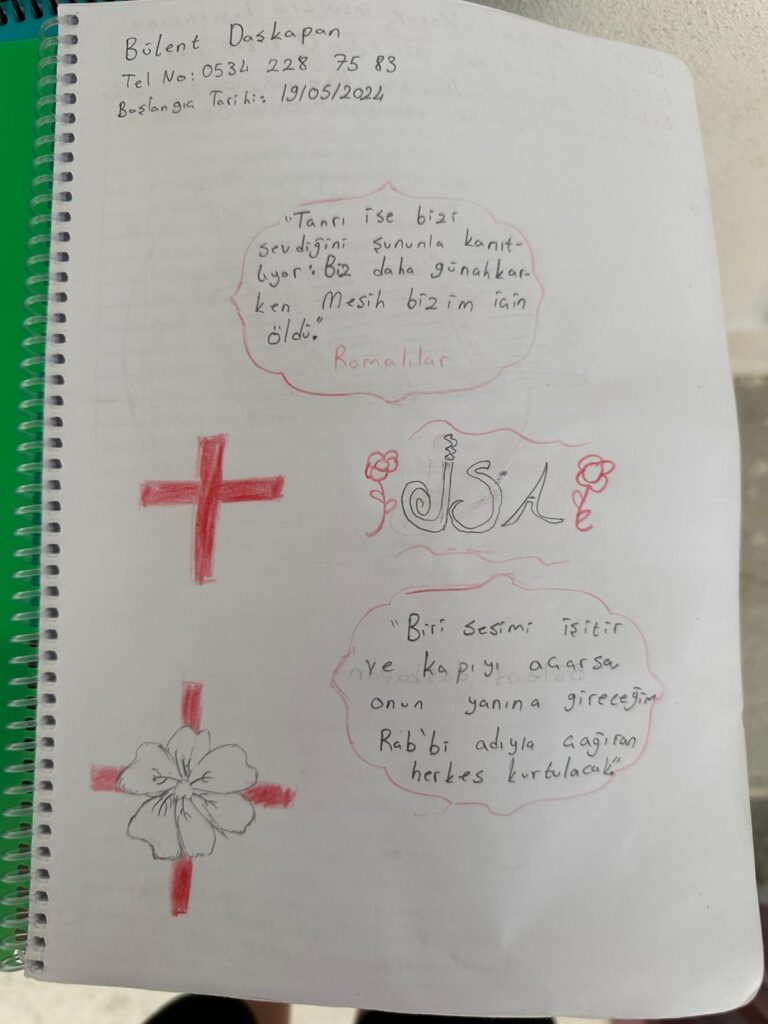 Bülent Daşkapan
Tel No: 0534 228 75 83
Başlangıç Tarihi: 19/05/2024
"Tanrı ise bizi
sevdiğini şununla kanıt-
lıyor: Biz daha günahkar-
ken Mesih bizim için
öldü."
Romalılar
İSA
"Biri sesimi işitir
ve kapıyı açarsa
onun yanına gireceğim
Rab'bi adıyla çağıran
herkes kurtulacak"